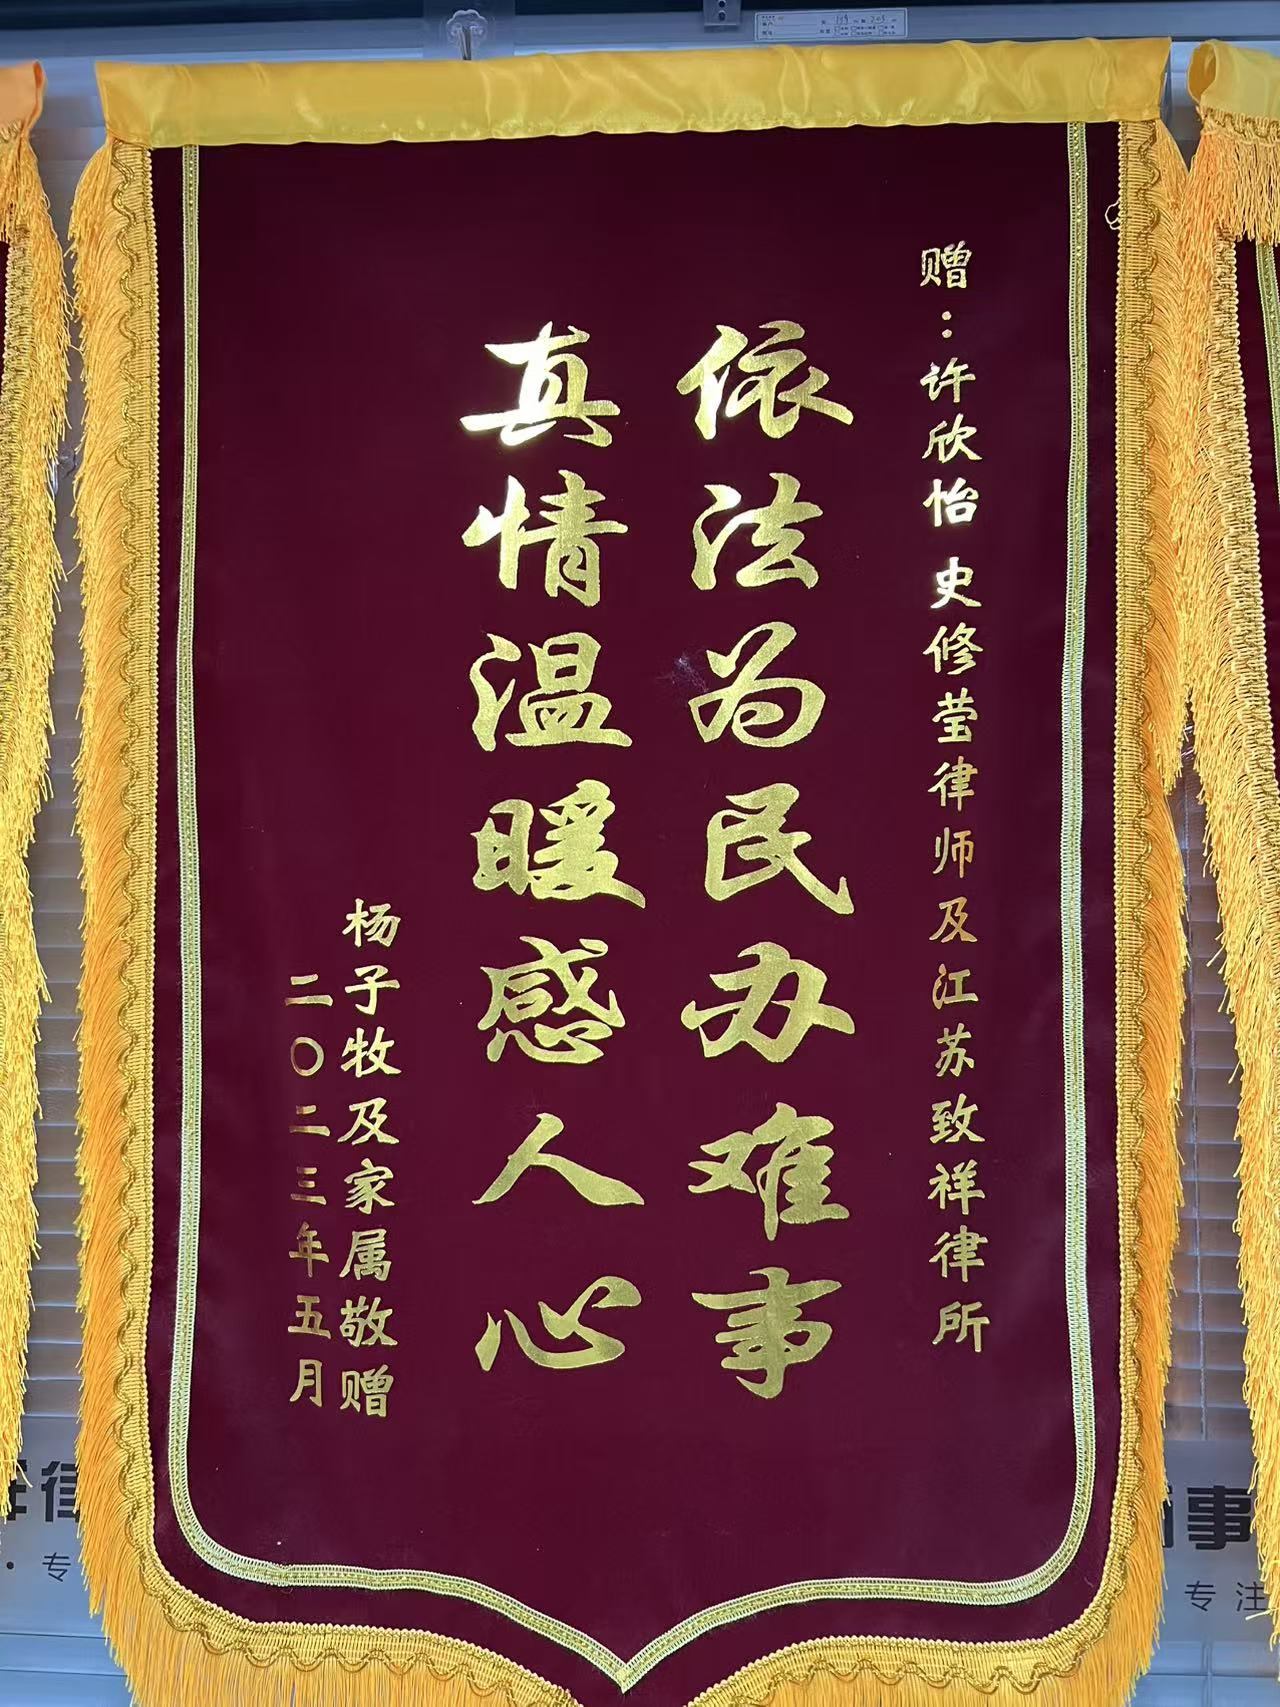 赠：许欣怡 史修莹律师及江苏致祥律所
依法为民办难事
真情温暖感人心
杨子牧及家属敬赠
二〇二三年五月
律
·专
事
专注